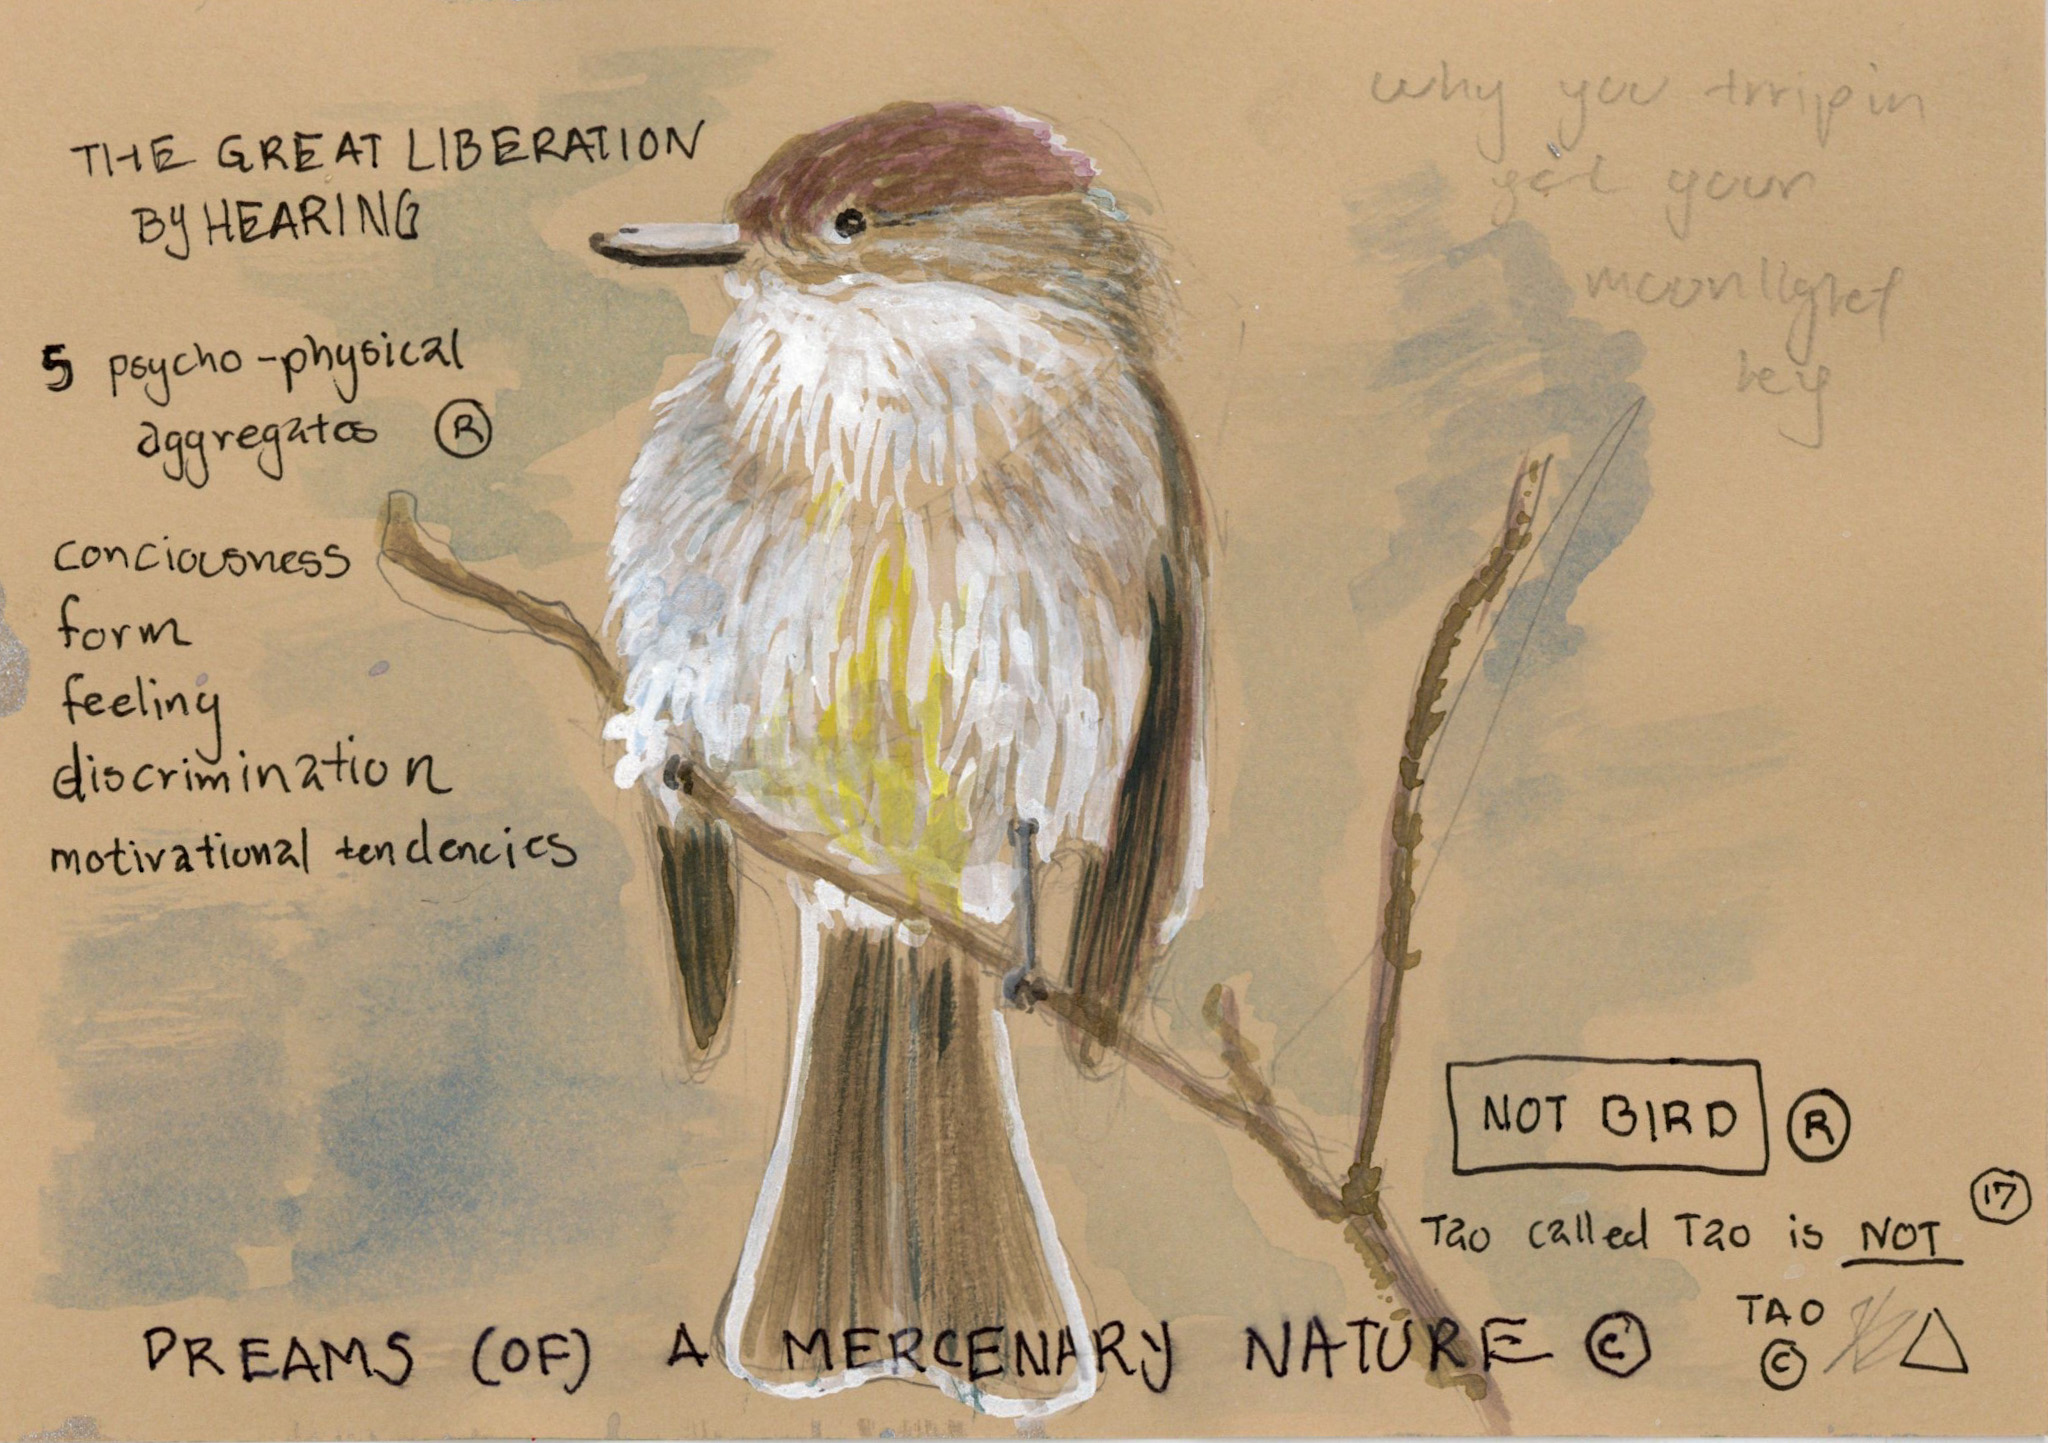 THE GREAT LIBERATION
BY HEARING
why you trrippin
get your
moonlight
key
5 psycho-physical
aggregates ®
conciousness
form
feeling
discrimination
motivational tendencies
NOT BIRD ®
17
Tao called Tao is NOT
TAO
©
DREAMS (OF) A MERCENARY NATURE ©